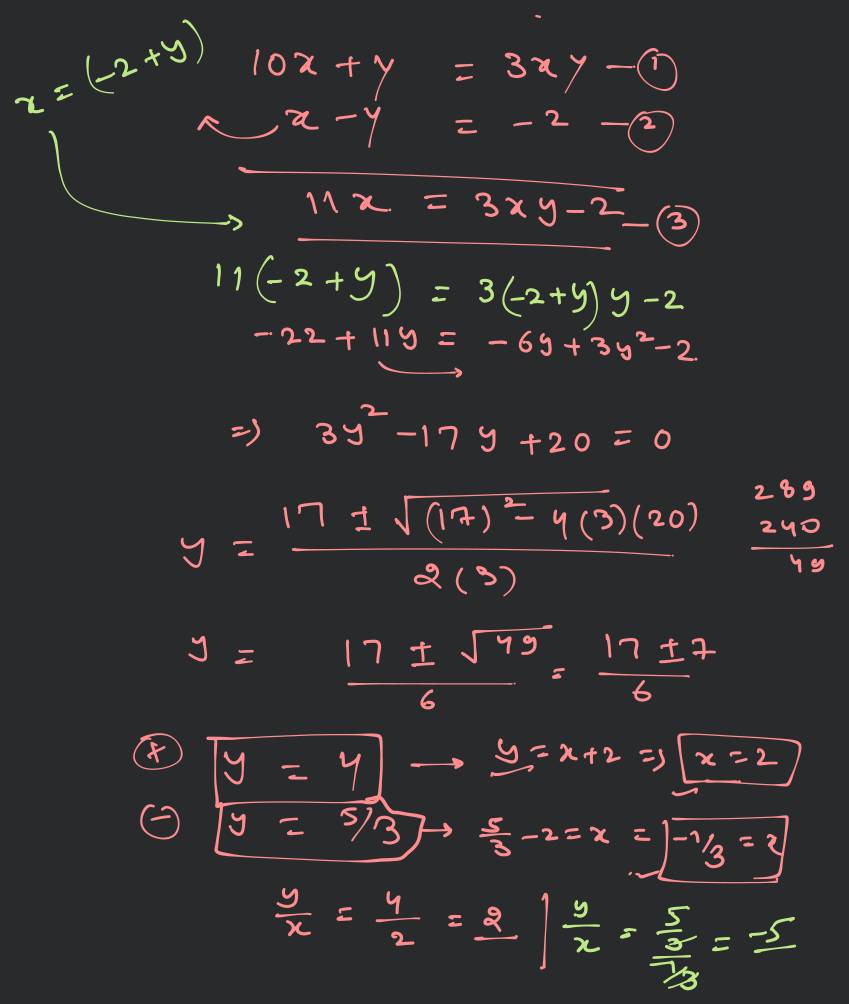 x = (-2+y)
10x + y = 3xy — ①
x - y = -2 — ②
11x = 3xy - 2 — ③
11(-2+y) = 3(-2+y)y - 2
-22 + 11y = -6y + 3y² - 2
=> 3y² - 17y + 20 = 0
y = (17 ± √((17)² - 4(3)(20))) / 2(3)
289
240
49
y = (17 ± √49) / 6 = (17 ± 7) / 6
(+) y = 4 → y = x+2 => x = 2
(-) y = 5/3 → 5/3 - 2 = x = -1/3 = x
y/x = 4/2 = 2 | y/x = (5/3)/(-1/3) = -5